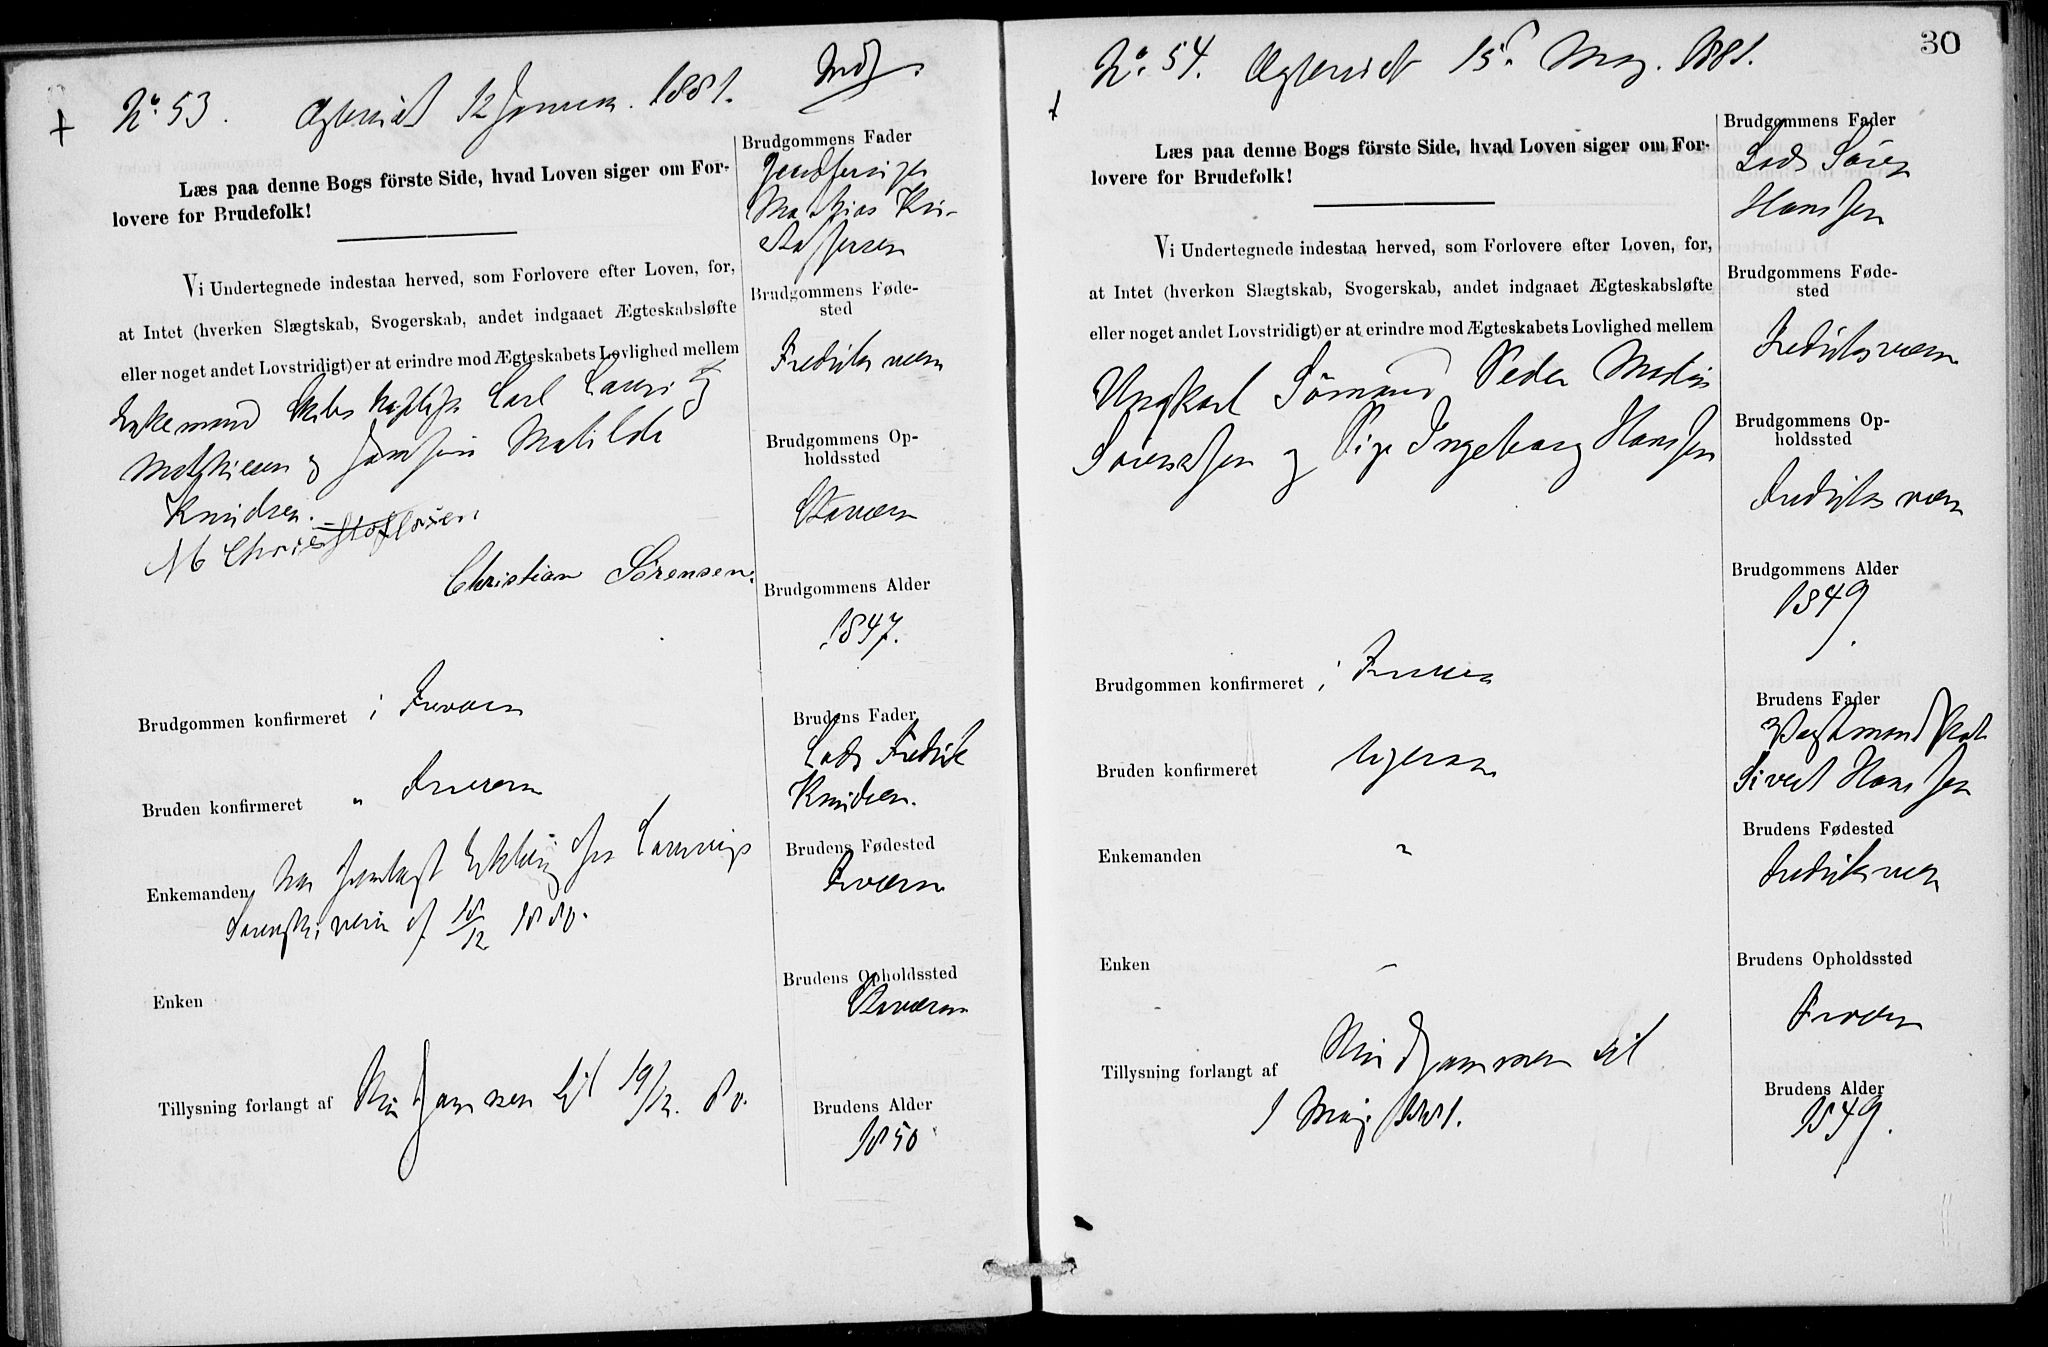 No 53. Ægteviet 12 Januar. 1881. Indf.
Læs paa denne Bogs förste Side, hvad Loven siger om For-
lovere for Brudefolk!
Vi Undertegnede indestaa herved, som Forlovere efter Loven, for,
at Intet (hverken Slægtskab, Svogerskab, andet indgaaet Ægteskabsløfte
eller noget andet Lovstridigt) er at erindre mod Ægteskabets Lovlighed mellem
Enkemand Carl Lauri
Mathiesen og Matilde
Knudsen.
M Christoffersen
Christian Sörensen.
Brudgommen konfirmeret i Frværn
Bruden konfirmeret " Frværn
Enkemanden har fra Laurvigs
Sorenskriveri af 18/12 1880.
Enken
Tillysning forlangt af Brudgommen til 19/12. 80.
Brudgommens Fader
Mathias Kri-
stoffersen
Brudgommens Føde-
sted
Fredriksværn
Brudgommens Op-
holdssted
Staværn
Brudgommens Alder
1847.
Brudens Fader
Lods Fredrik
Knudsen.
Brudens Fødested
Frværn
Brudens Opholdssted
Staværn
Brudens Alder
1850
30
No 54. Ægteviet 15 Maj. 1881.
Læs paa denne Bogs förste Side, hvad Loven siger om For-
lovere for Brudefolk!
Vi Undertegnede indestaa herved, som Forlovere efter Loven, for,
at Intet (hverken Slægtskab, Svogerskab, andet indgaaet Ægteskabsløfte
eller noget andet Lovstridigt) er at erindre mod Ægteskabets Lovlighed mellem
Ungkarl Sömand Peder Martin
Sörensen og Pige Ingeborg Hanssen
Brudgommen konfirmeret i Frværn
Bruden konfirmeret ligesaa
Enkemanden "
Enken –
Tillysning forlangt af Brudgommen til
1 Maj 1881.
Brudgommens Fader
Lods Sören
Hanssen
Brudgommens Føde-
sted
Fredriksværn
Brudgommens Op-
holdssted
Fredriksværn
Brudgommens Alder
1849.
Brudens Fader
Vagtmand
Sivert Hanssen
Brudens Fødested
Fredriksværn
Brudens Opholdssted
Frværn
Brudens Alder
1849.